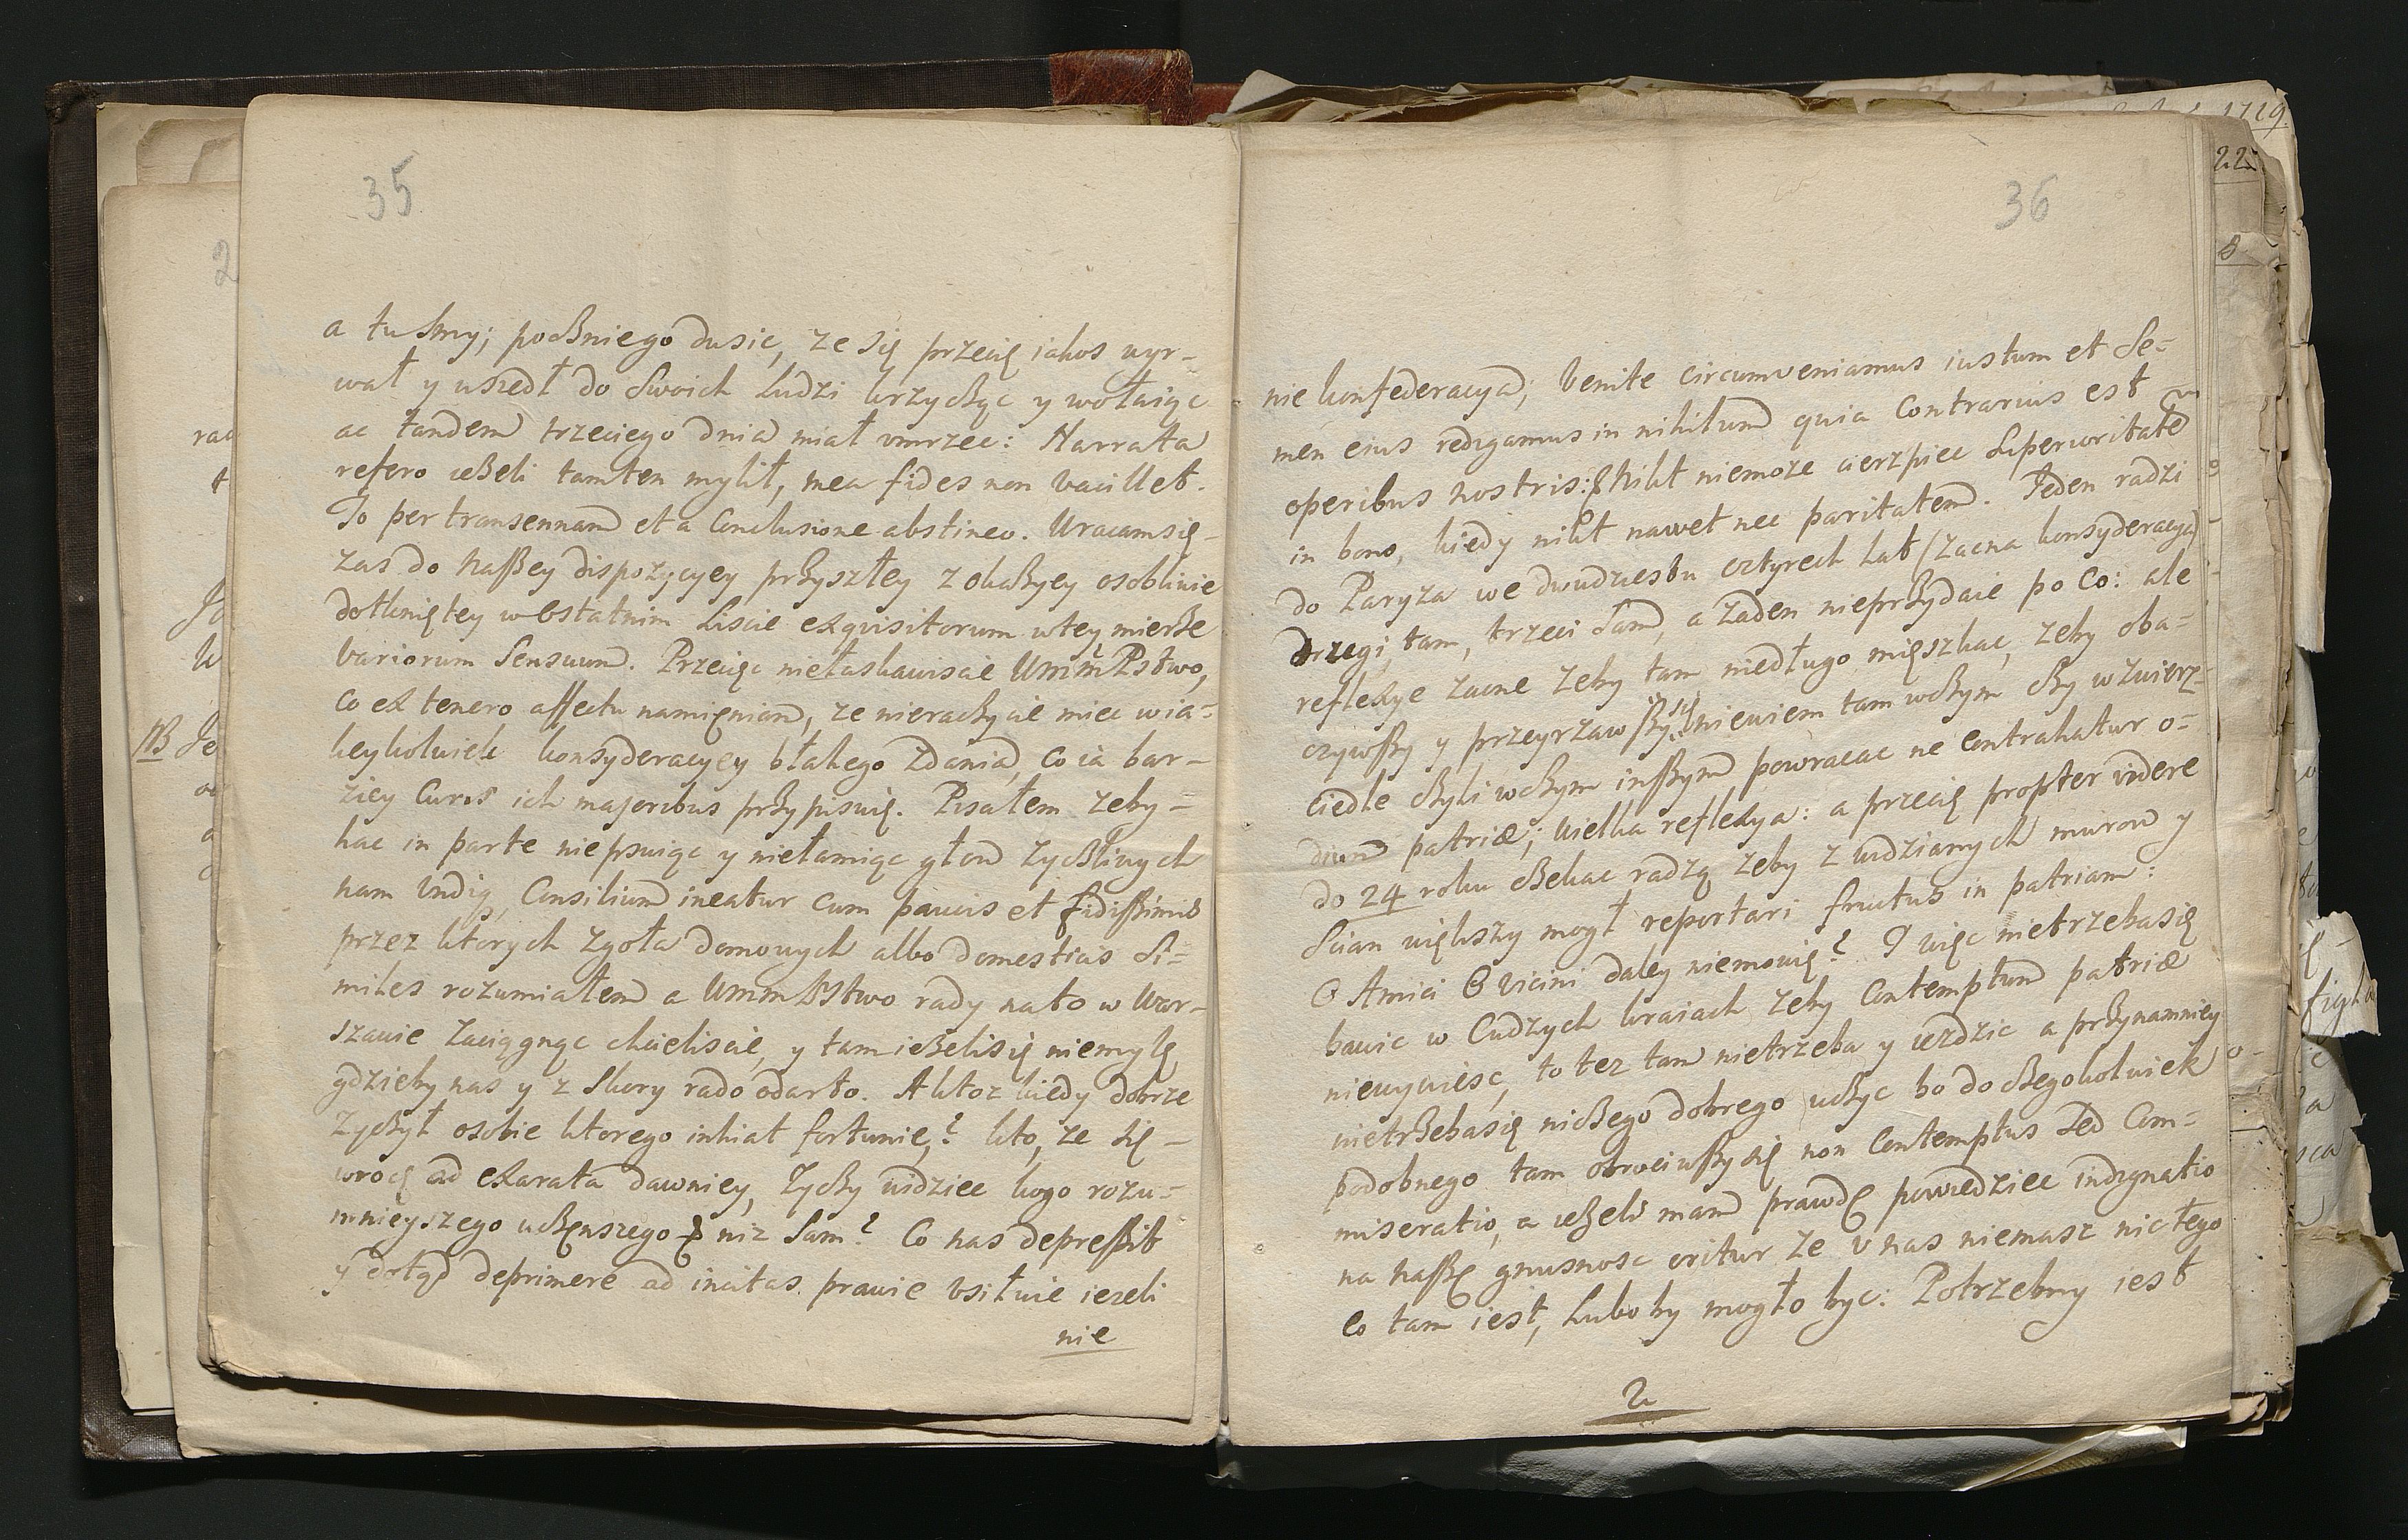 35
a tu Smy; poczniego dusic, ze się przecię iakos wyr-
wał y uszedł do Swoich Ludzi krzycząc y wołaiąc
ac tandem trzeciego dnia miał vmrzec: Narrata
refero ieżeli tamten mylił, mea fides non vacillet.
To per transennam et a Conclusione abstineo. Wracamsię-
zas do naszey dispozycyey przyszłey z okazyey osobliwie
dotkniętey w ostatnim Liscie exquisitorum wtey mierze
variorum Sensuum. Przeciąc niełaskawiscie WmmPstwo,
co ex tenero affectu namięniam, ze nieraczycie miec wia-
keykolwiek konsyderacyey błahego zdania, co ia bar-
ziey Curis ich majoribus przypisuię. Pisałem zeby-
hac in parte niepsuiąc y niełamiąc głow zyczliwych
nam vndiq, Consilium ineatur cum paucis et fidissimis
przez ktorych zgoła domowych albo domesticis Si-
miles rozumiałem a WmmPstwo rady nato w War-
szawie zaciągnąc chcieliscie, y tam iezelisię niemylę
gdzieby nas y z Skory rado odarło. A ktoz kiedy dobrze
zyczył osobie ktorego inhiat fortunie,? kto, ze się-
wrocę ad exarata dawniey, zyczy widziec kogo rozu-
mnieyszego uczęnszego niz Sam? Co nas depressit
y dotąd deprimere ad incitas prawie vsiłuie iezeli
nie
36
nie konfederacya; Venite circumveniamus iustum et Se-
men eius redigamus in nihilum quia Contrarius est
operibus nostris: Nikt niemoze cierzpiec Superioritate
in bono, kiedy nikt nawet nec paritatem. Jeden radzi
do Paryza we dwudziestu cztyrech Lat (zacna konsyderacya)
drugi tam, trzeci Sam, a zaden nieprzydaie po co: ale
reflexye zacne zeby tam niedługo mięszkac, zeby oba-
czywszy y przeyrzawszy się niewiem tam wczym czy wzwierz-
ciedle czyli wczym inszym powracac ne contrahatur o-
dium patriæ; wielka reflexya: a przecię propter videre
do 24 roku czekac radzą zeby z widzianych murow y
Scian większy mogł reportari fructus in patriam:
O Amici O vicini daley niemowię? I więc nietrzebasię
bawic w Cudzych kraiach zeby Contemptum patriæ
niewyniesc, to tez tam nietrzeba y iezdzic a przynamniey
nietrzebasię niczego dobrego uczyc bo do czegokolwiek
podobnego tam obrociwszysię non Contemptus Sed Com-
miseratio, a ieżeli mam prawdę powiedziec indignatio
na naszę gnusnosc oritur ze v nas niemasz nic tego
co tam iest, Lubo by mogło byc: Potrzebny iest
2